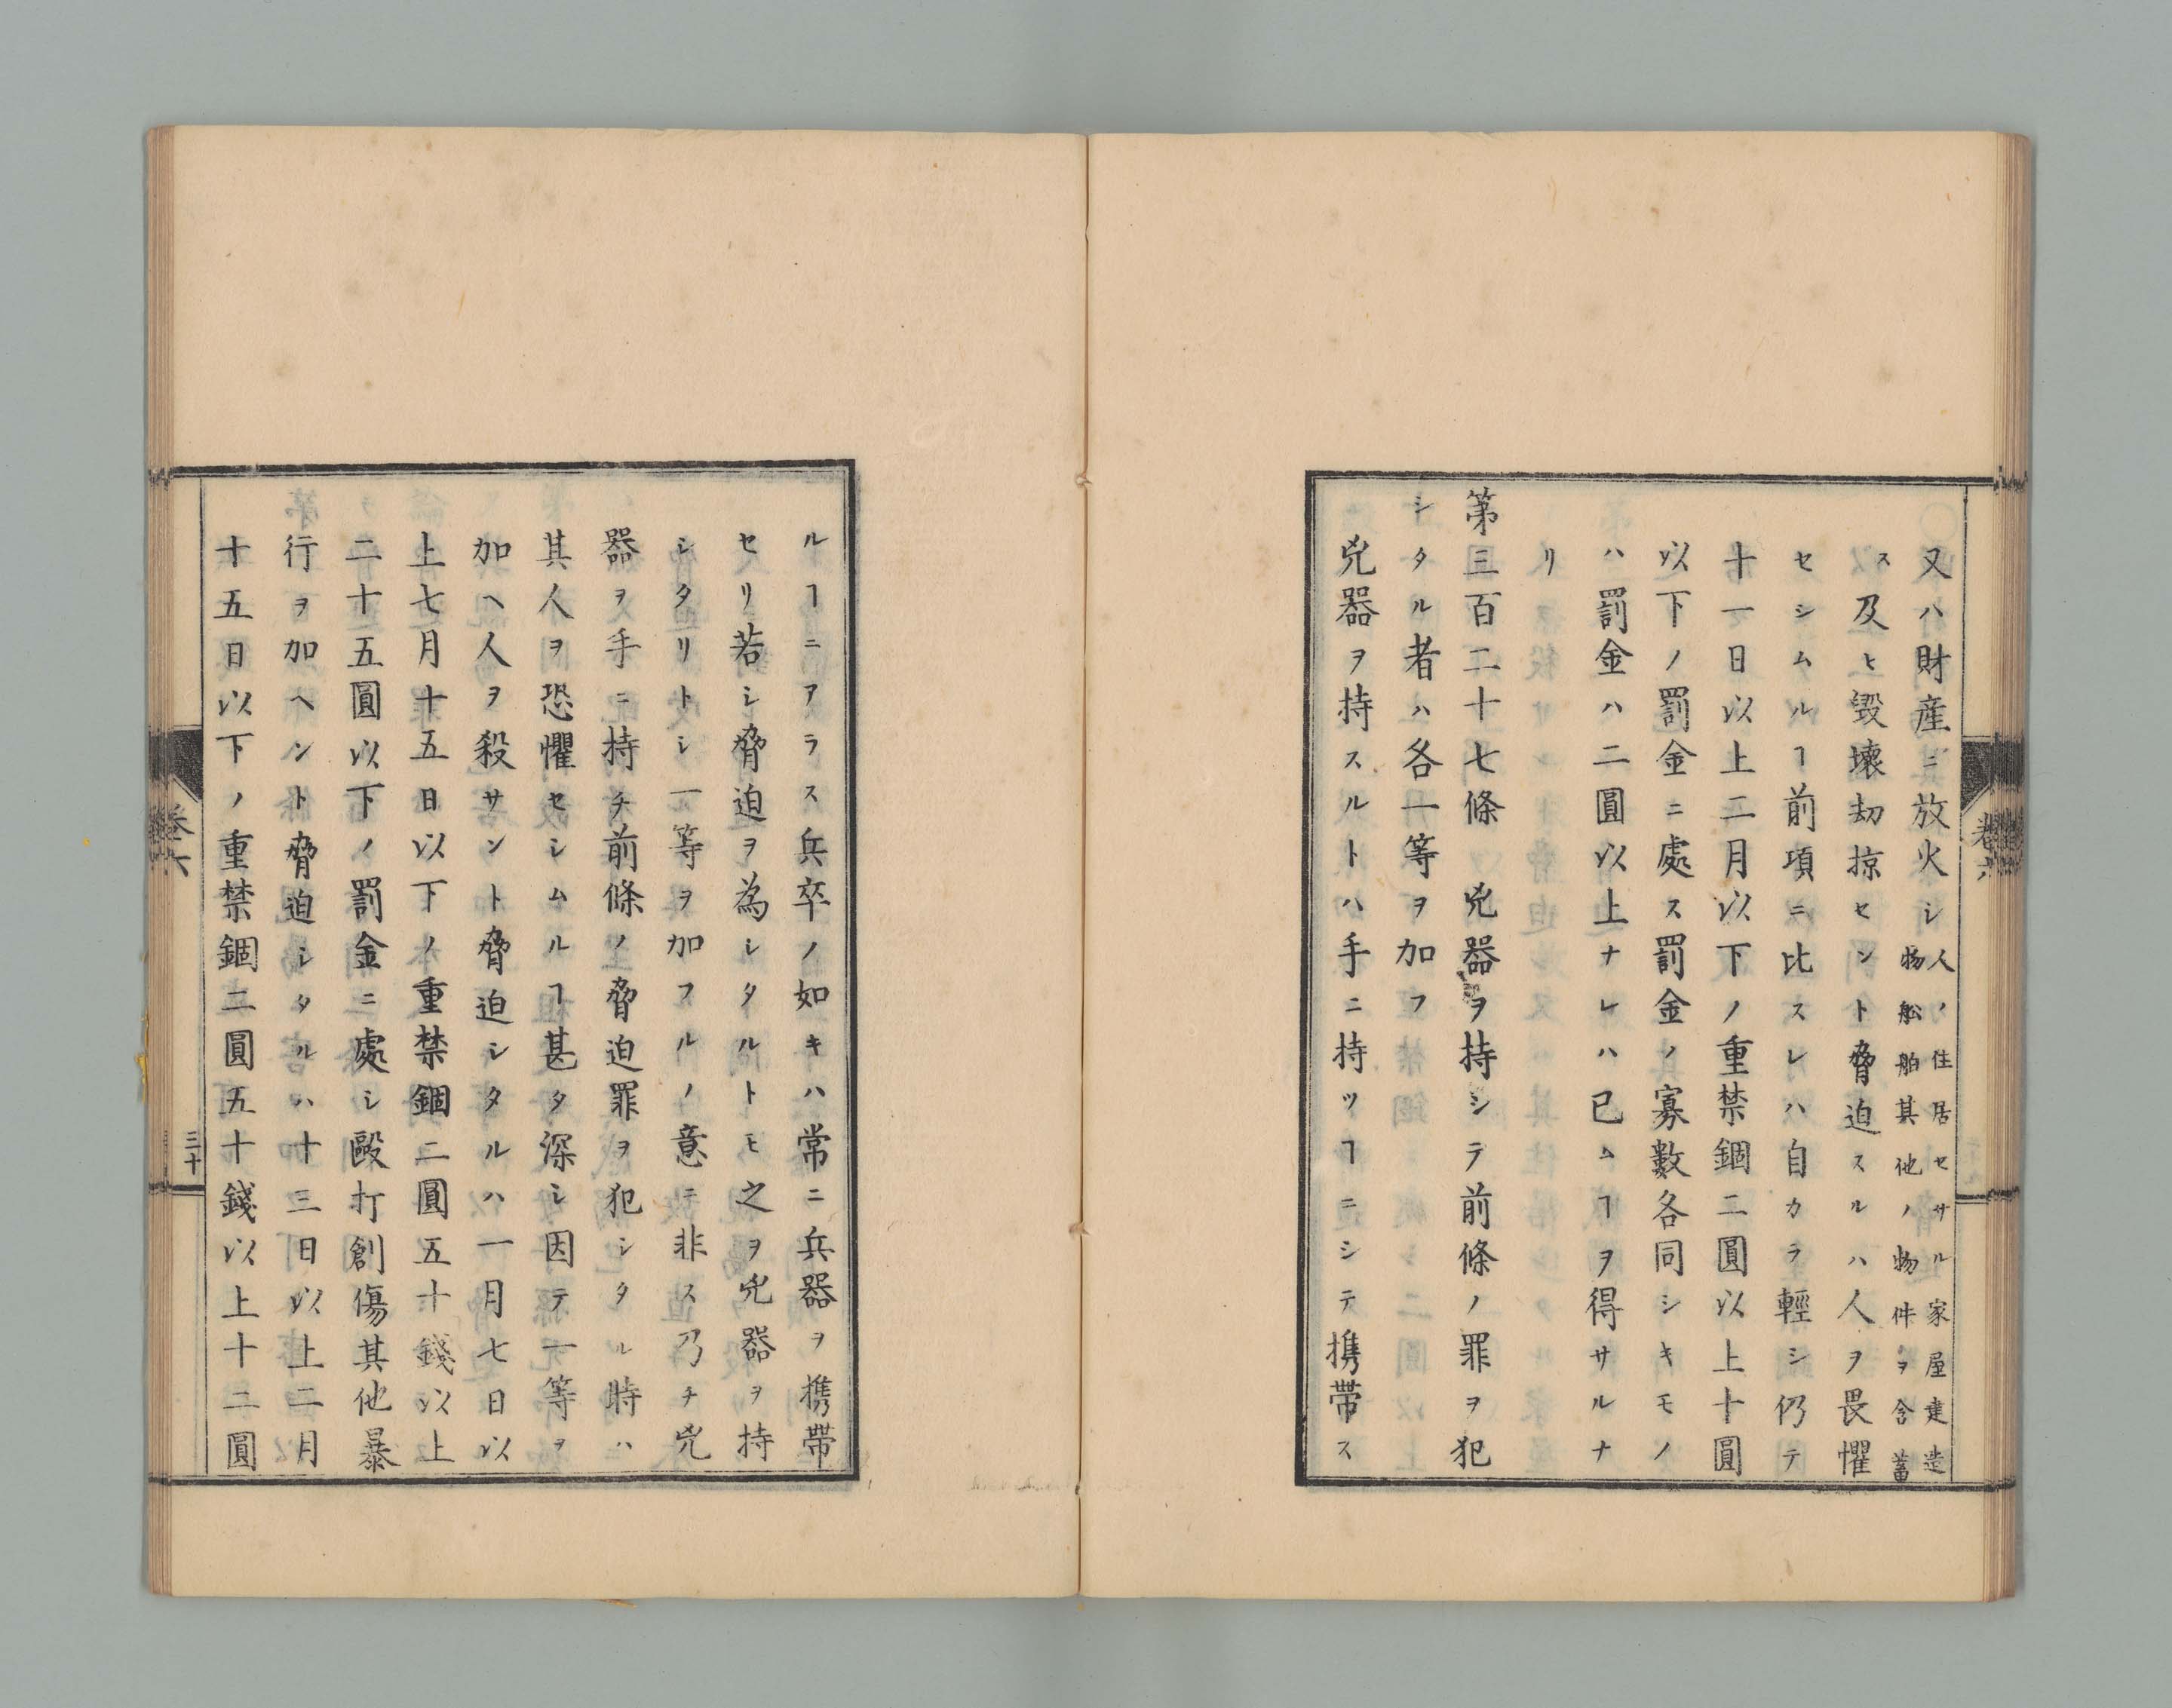 又ハ財産ニ放火シ人ノ住居セサル家屋建造
物船舶其他ノ物件ヲ含蓄
ス及ヒ毀壞劫掠セント脅迫スルハ人ヲ畏懼
セシムルヿ前項ニ比スレハ自カラ輕シ仍テ
十一日以上二月以下ノ重禁錮二圓以上十圓
以下ノ罰金ニ處ス罰金ノ寡數各同シキモノ
ハ罰金ハ二圓以上ナレハ已ムヿヲ得サルナ
リ
第三百二十七條 兇器ヲ持シテ前條ノ罪ヲ犯
シタル者ハ各一等ヲ加フ
兇器ヲ持スルトハ手ニ持ツヿニシテ携帶ス
卷六
ルヿニアラス兵卒ノ如キハ常ニ兵器ヲ携帶
セリ若シ脅迫ヲ為シタルトモ之ヲ兇器ヲ持
シタリトシ一等ヲ加フルノ意ニ非ス乃チ兇
器ヲ手ニ持チ前條ノ脅迫罪ヲ犯シタル時ハ
其人ヲ恐懼セシムルヿ甚タ深シ因テ一等ヲ
加ヘ人ヲ殺サント脅迫シタルハ一月七日以
上七月十五日以下ノ重禁錮二圓五十錢以上
二十五圓以下ノ罰金ニ處シ毆打創傷其他暴
行ヲ加ヘント脅迫シタルハ十三日以上二月
十五日以下ノ重禁錮二圓五十錢以上十二圓
卷六
三十